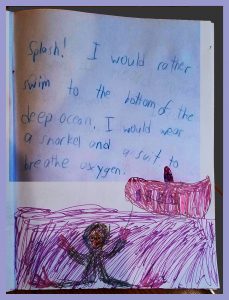 Splash! I would rather
swim to the bottom of the
deep ocean. I would wear
a snorkel and a suit to
breathe oxygen.